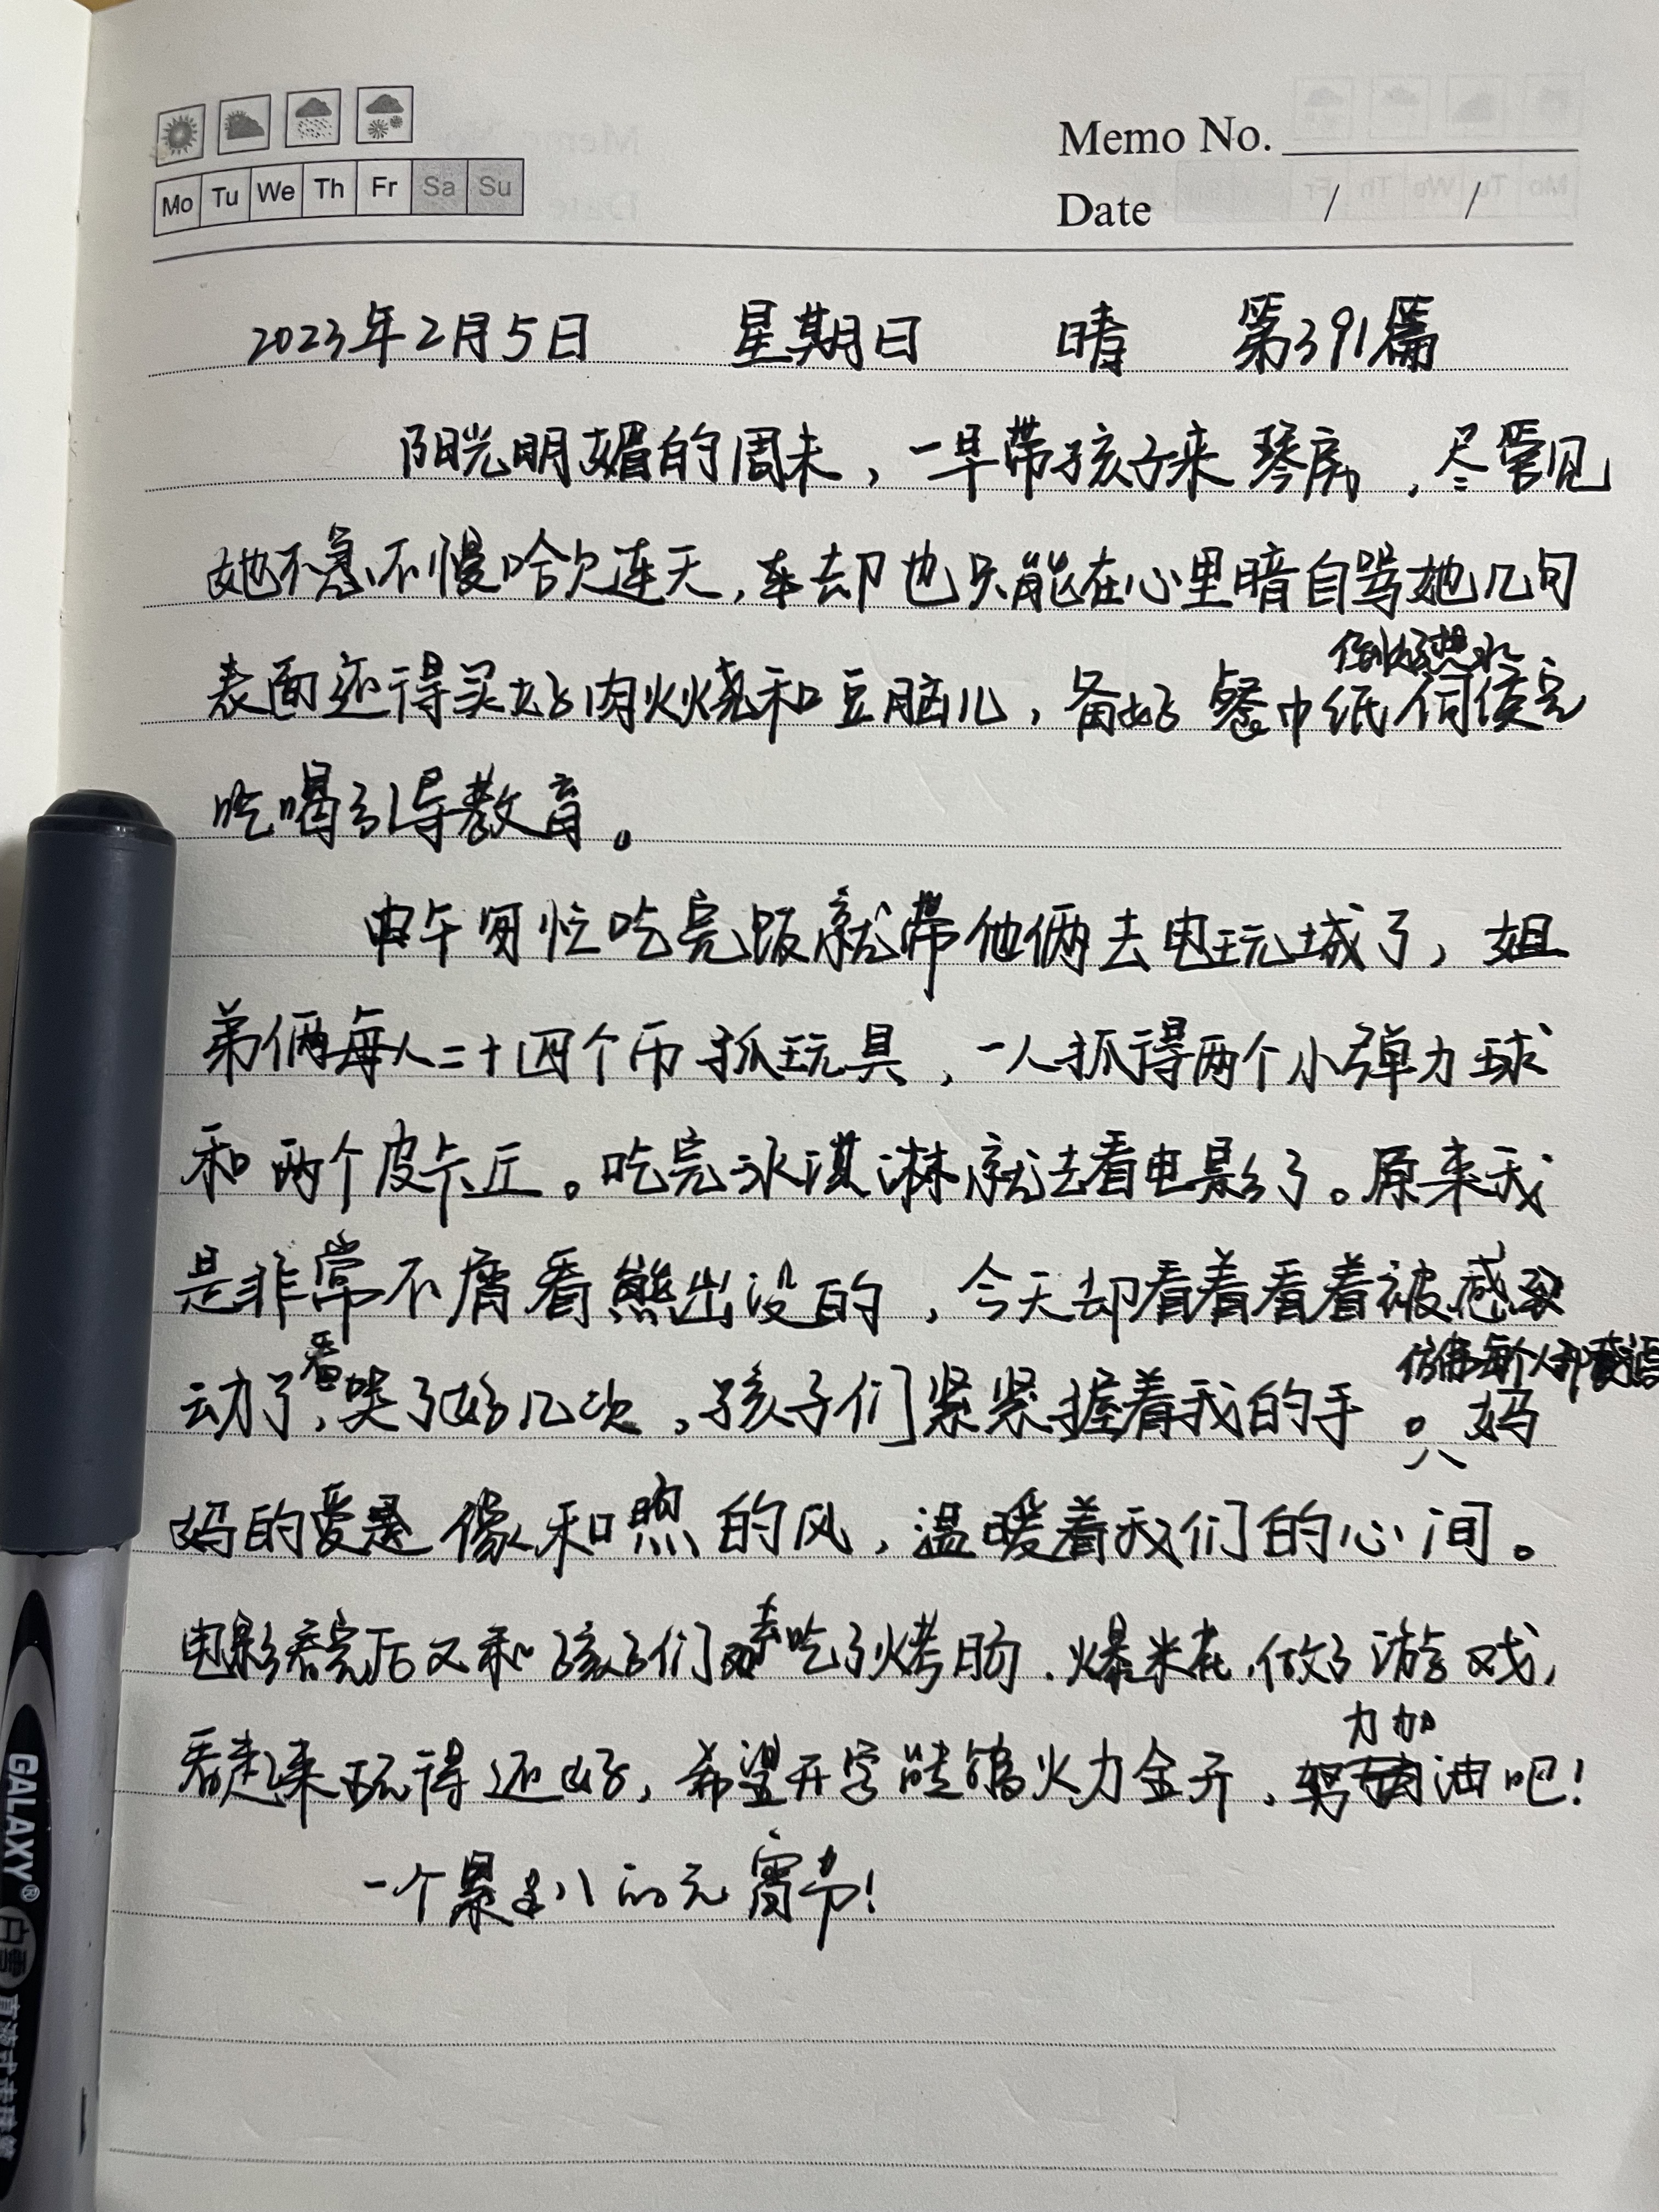 Memo No.
Mo Tu We Th Fr Sa Su
Date / /
2023年2月5日 星期日 晴 第391篇
阳光明媚的周末，一早带孩子来琴房，尽管见
她不急不慢哈欠连天，却也只能在心里暗自骂她几句
表面还得买好肉火烧和豆脑儿，备好餐巾纸倒好热水伺候完
吃喝引导教育。
中午匆忙吃完饭就带他俩去电玩城了，姐
弟俩每人二十四个币抓玩具，一人抓得两个小弹力球
和两个皮卡丘。吃完冰淇淋就去看电影了。原来我
是非常不屑看熊出没的，今天却看着看着被感
动了，看哭了好几次，孩子们紧紧握着我的手。仿佛每个人都在说 妈
妈的爱是像和煦的风，温暖着我们的心间。
电影看完后又和孩子们去吃了烤肠、爆米花，做了游戏，
看起来玩得还好，希望开学能够火力全开，努力加油吧！
一个最的元宵节！
GALAXY®
白雪
直液式走珠笔